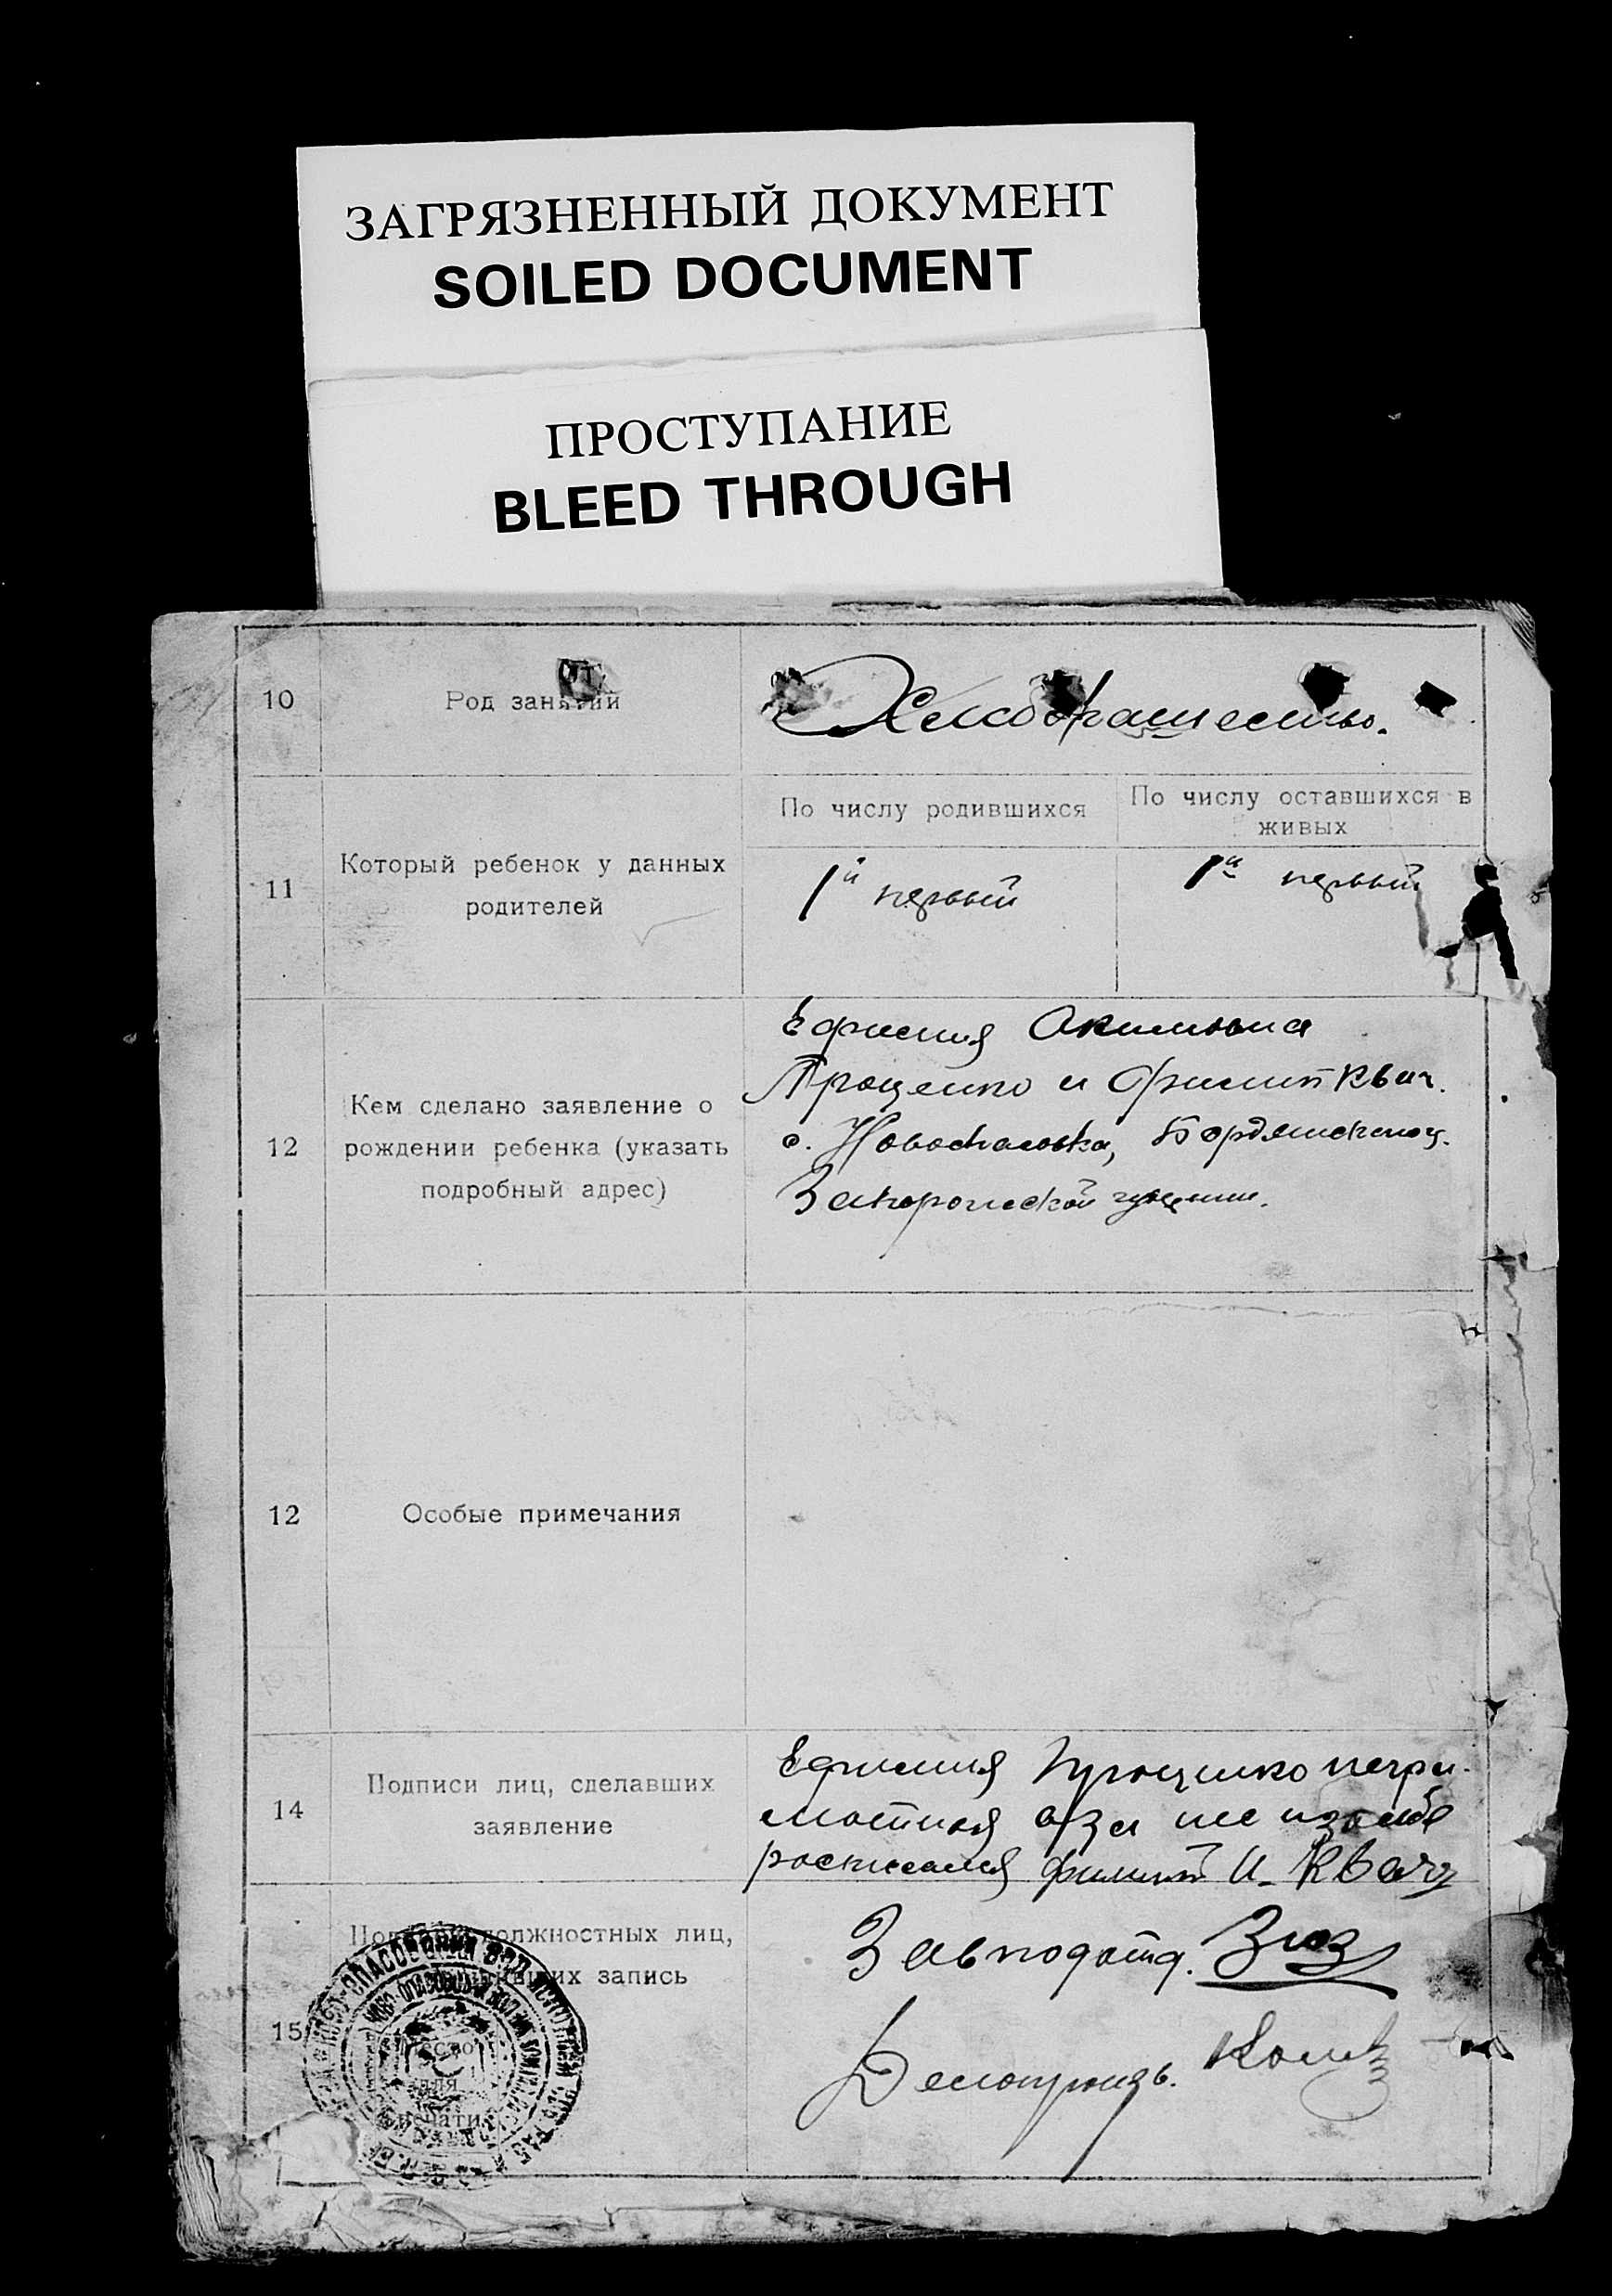 ЗАГРЯЗНЕННЫЙ ДОКУМЕНТ
SOILED DOCUMENT
ПРОСТУПАНИЕ
BLEED THROUGH
10
Род занятий
От.
Хлебопашество.
11
Который ребенок у данных
родителей
По числу родившихся
По числу оставшихся в
живых
1й первый
1й первый
12
Кем сделано заявление о
рождении ребенка (указать
подробный адрес)
Ефимия Акимовна
Проценко и Филип Квач.
с. Новоспасовка, Бердянского у.
Запорожской губернии.
12
Особые примечания
14
Подписи лиц, сделавших
заявление
Ефимия Проценко негра-
мотная а за неё
росписался Филип И. Квач
15
должностных лиц,
запись
Место
для
печати
Завподотд. Зюз
Делопроизв.